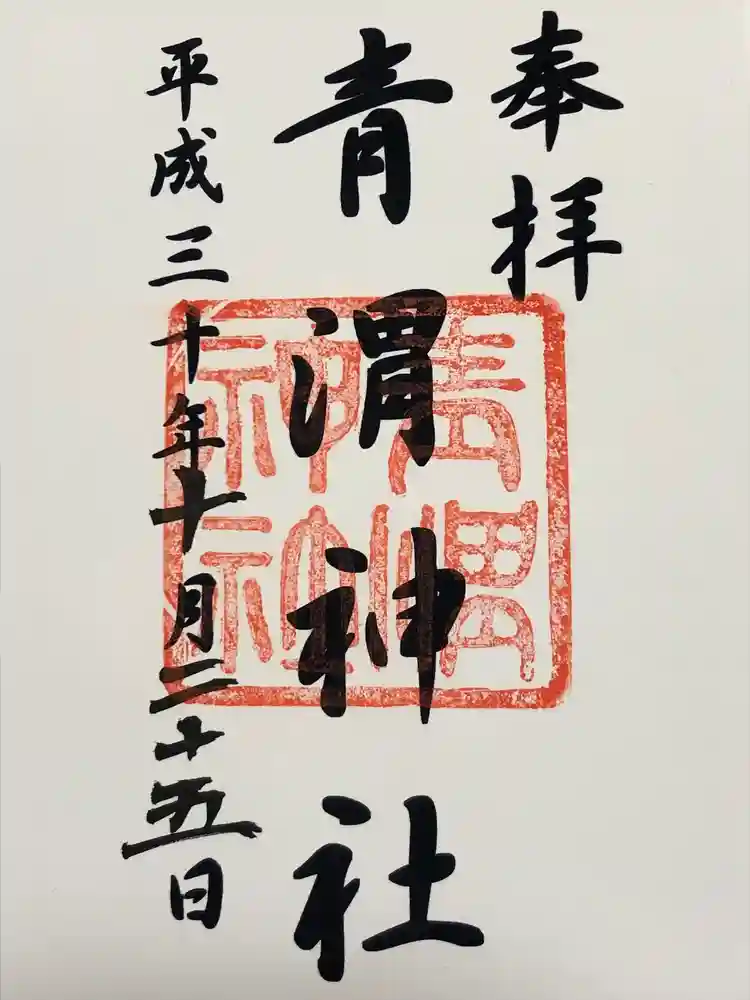 奉拝
青渭神社
青渭
神社
平成三十年十月二十五日